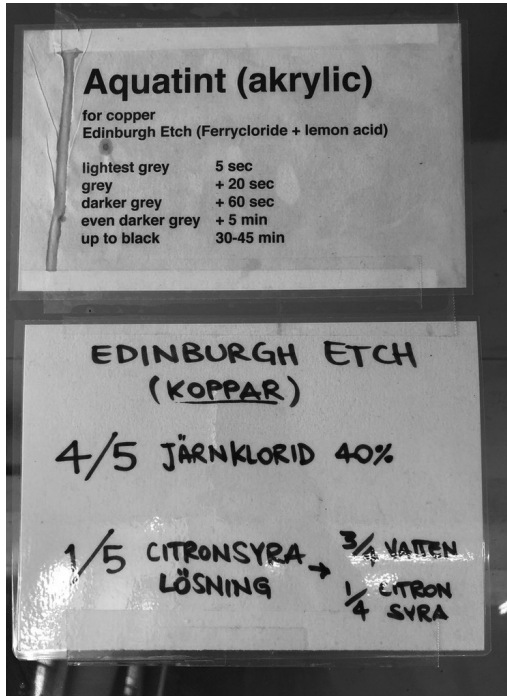 Aquatint (akrylic)
for copper
Edinburgh Etch (Ferrycloride + lemon acid)
lightest grey 5 sec
grey + 20 sec
darker grey + 60 sec
even darker grey + 5 min
up to black 30-45 min
EDINBURGH ETCH
(KOPPAR)
4/5 JÄRNKLORID 40%
1/5 CITRONSYRA LÖSNING → 3/4 VATTEN
1/4 CITRON SYRA